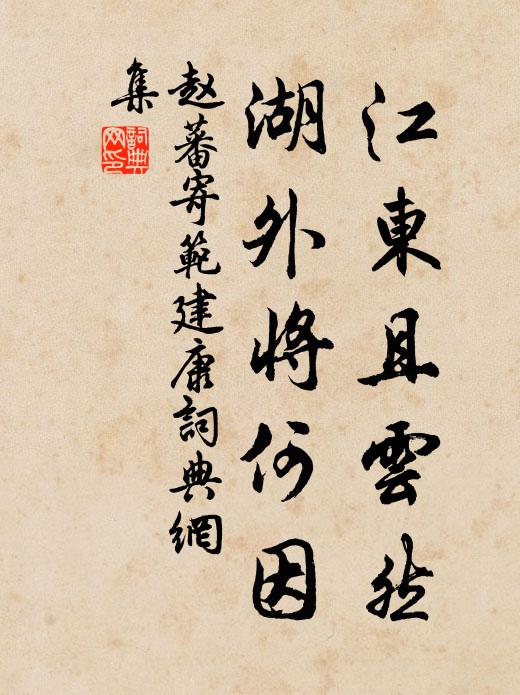 江東且雲然
湖外將何因
赵蕃寄範建康詞典網
集
詞典
网印